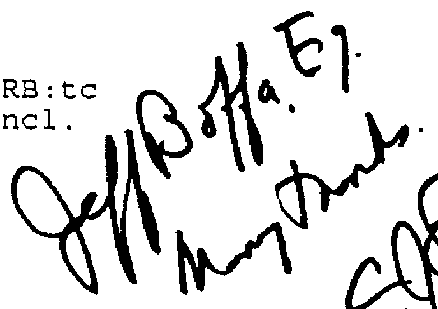 RB:tc
ncl.
Jeff Boffa, Eq.
Many thanks.